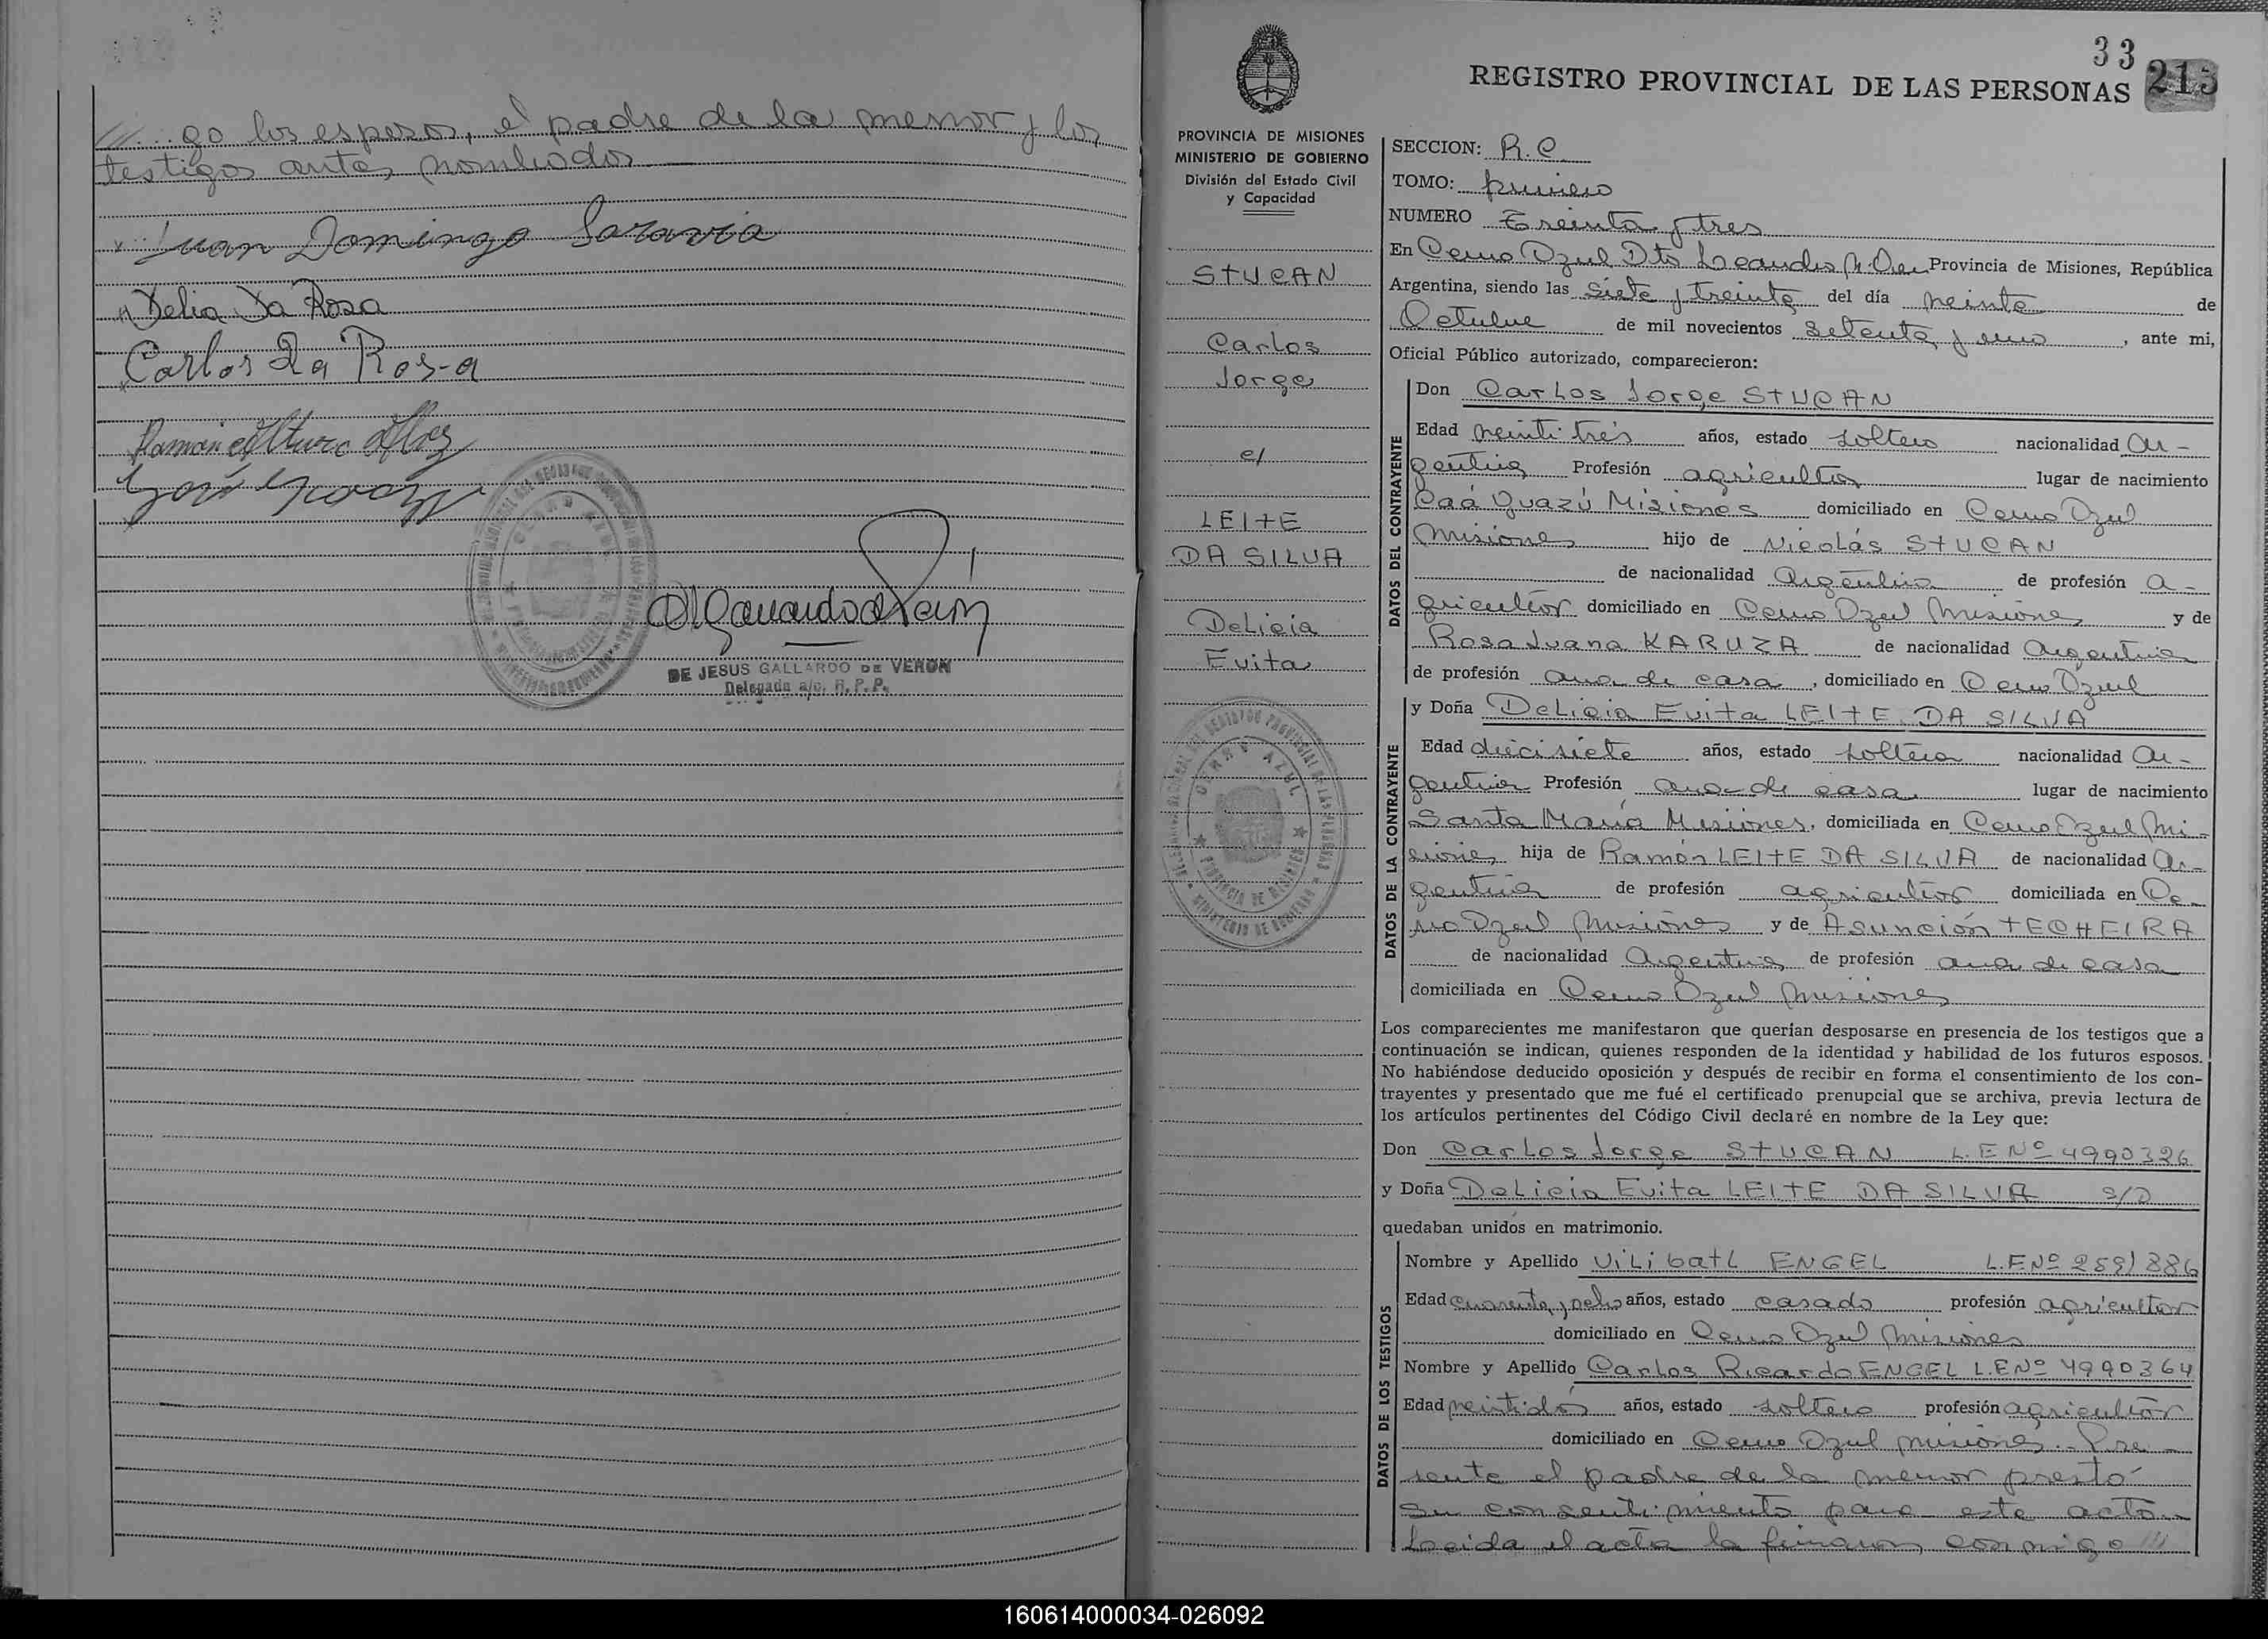 ///...go los esposos, el padre de la menor y los
testigos antes nombrados
Juan Domingo Saravia
Delia Da Rosa
Carlos Da Rosa
Ramón
José
DE JESUS GALLARDO DE VERON
Delegada a/c. R.P.P.
33
213
REGISTRO PROVINCIAL DE LAS PERSONAS
PROVINCIA DE MISIONES
MINISTERIO DE GOBIERNO
División del Estado Civil
y Capacidad
STUCAN
Carlos
Jorge
c/
LEITE
DA SILVA
Delicia
Evita
CERRO AZUL
PROVINCIA DE MISIONES
MINISTERIO DE GOBIERNO
SECCION: R.C.
TOMO: primero
NUMERO Treinta y tres
En Cerro Azul Dto Leandro N. Alem Provincia de Misiones, República
Argentina, siendo las siete y treinta del día veinte de
Octubre de mil novecientos setenta y uno, ante mi,
Oficial Público autorizado, comparecieron:
DATOS DEL CONTRAYENTE
Don Carlos Jorge STUCAN
Edad veinti trés años, estado soltero nacionalidad Ar-
gentina Profesión agricultor lugar de nacimiento
Caá Guazú Misiones domiciliado en Cerro Azul
Misiones hijo de Nicolás STUCAN
de nacionalidad Argentina de profesión a-
gricultor domiciliado en Cerro Azul Misiones y de
Rosa Juana KARUZA de nacionalidad Argentina
de profesión ama de casa, domiciliado en Cerro Azul
DATOS DE LA CONTRAYENTE
y Doña Delicia Evita LEITE DA SILVA
Edad diecisiete años, estado soltera nacionalidad Ar-
gentina Profesión ama de casa lugar de nacimiento
Santa María Misiones, domiciliada en Cerro Azul Mi-
siones hija de Ramón LEITE DA SILVA de nacionalidad Ar-
gentina de profesión agricultor domiciliada en Ce-
rro Azul Misiones y de Asunción TECHEIRA
de nacionalidad Argentina de profesión ama de casa
domiciliada en Cerro Azul Misiones
Los comparecientes me manifestaron que querían desposarse en presencia de los testigos que a
continuación se indican, quienes responden de la identidad y habilidad de los futuros esposos.
No habiéndose deducido oposición y después de recibir en forma el consentimiento de los con-
trayentes y presentado que me fué el certificado prenupcial que se archiva, previa lectura de
los artículos pertinentes del Código Civil declaré en nombre de la Ley que:
Don Carlos Jorge STUCAN L.E Nº 4990326
y Doña Delicia Evita LEITE DA SILVA S/D
quedaban unidos en matrimonio.
DATOS DE LOS TESTIGOS
Nombre y Apellido Vilibatl ENGEL L.E Nº 2591886
Edad cuarenta y ocho años, estado casado profesión agricultor
domiciliado en Cerro Azul Misiones
Nombre y Apellido Carlos Ricardo ENGEL L.E Nº 4990364
Edad veintidós años, estado soltero profesión agricultor
domiciliado en Cerro Azul Misiones.- Pre-
sente el padre de la menor prestó
su consentimiento para este acto.-
Leida el acta la firmaron conmigo ///
160614000034-026092